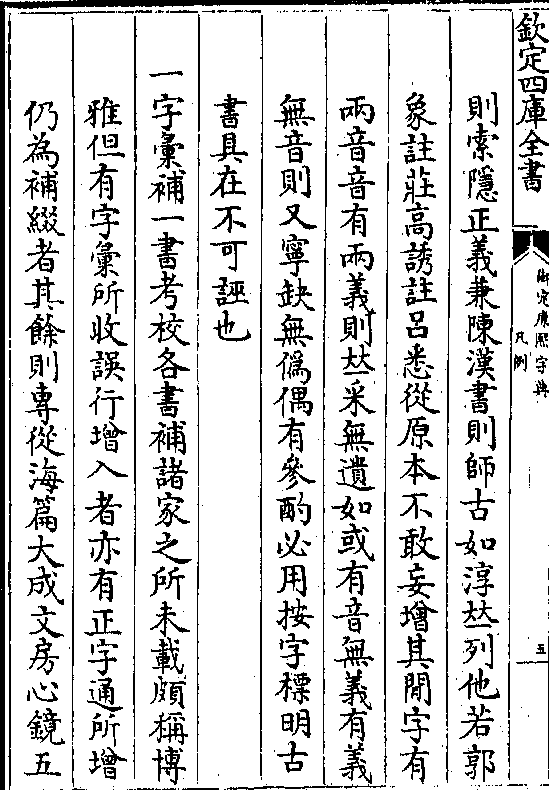 欽定四庫全書
御定康熙字典
凡例
五
則索隱正義兼陳漢書則師古如淳𠀤列他若郭
象註莊高誘註吕悉從原本不敢妄增其間字有
兩音音有兩義則𠀤采無遺如或有音無義有義
無音則又寧缺無僞偶有參酌必用按字標明古
書具在不可誣也
一字彙補一書考校各書補諸家之所未載頗稱博
雅但有字彙所收誤行增入者亦有正字通所增
仍為補綴者其餘則專從海篇大成文房心鏡五